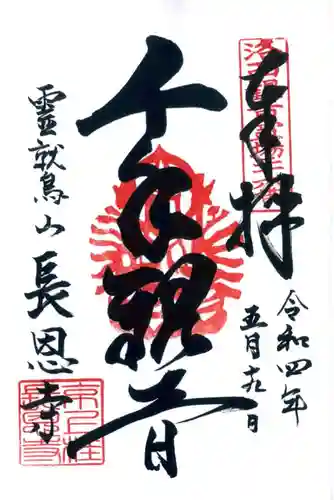 奉拝
令和四年
五月十九日
千手観音
霊鷲山 長恩寺